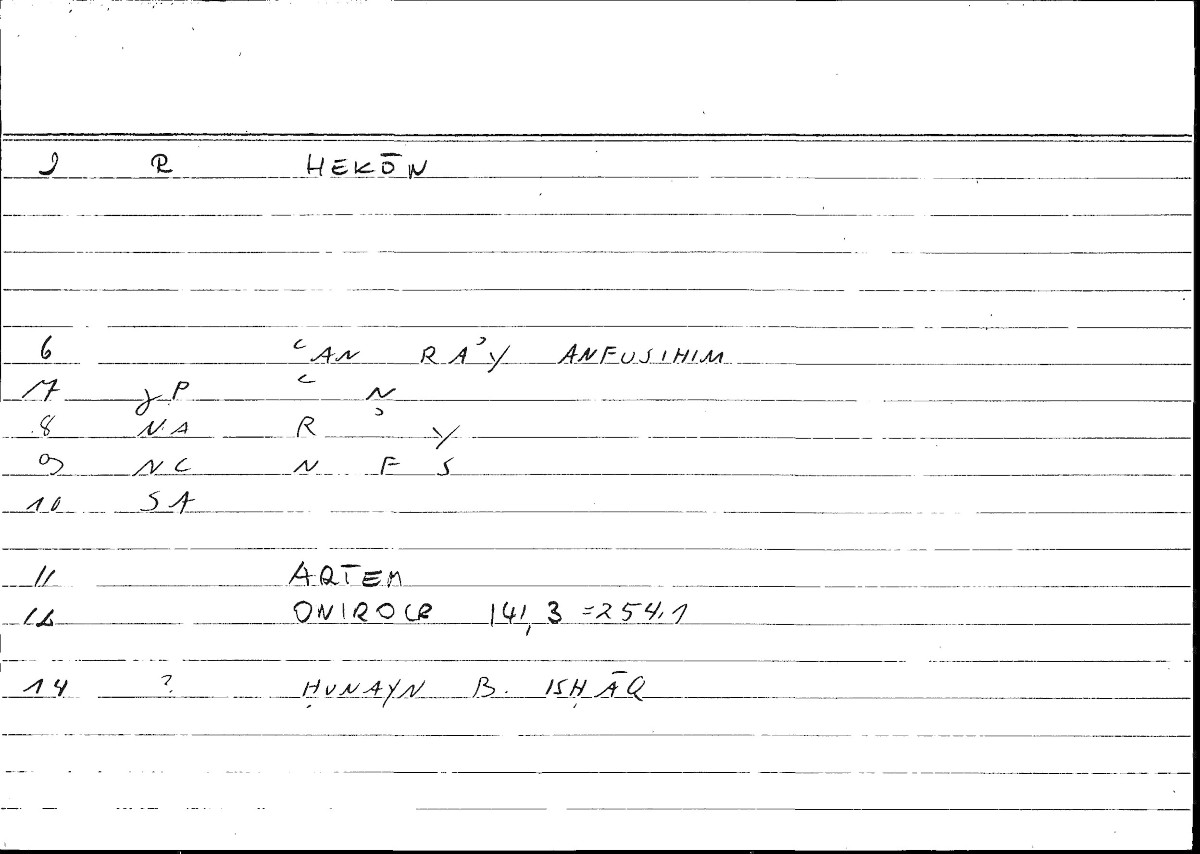 2 R HEKŌN
6 ʿAN RAʾY ANFUSIHIM
7 gP ʿ N
8 NA R ʾ Y
9 NC N F S
10 SA
11 ARTEM
12 ONIROCR 141,3 =254.1
14 ? ḤUNAYN B. ISḤĀQ